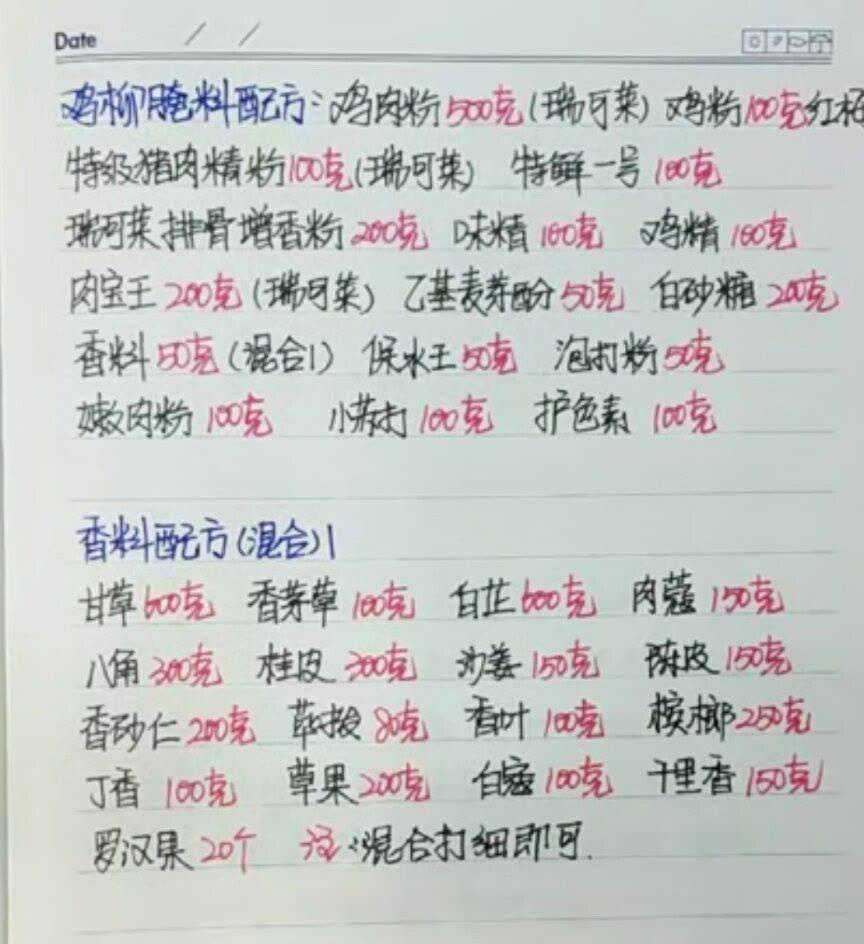 Date / /
鸡柳腌料配方:鸡肉粉500克(瑞可莱) 鸡粉100克红
特级猪肉精粉100克(瑞可莱) 特鲜一号100克
瑞可莱排骨增香粉200克 味精100克 鸡精100克
肉宝王200克(瑞可莱) 乙基麦芽酚50克 白砂糖200克
香料50克(混合1) 保水王50克 泡打粉50克
嫩肉粉100克 小苏打100克 护色素100克
香料配方(混合)1
甘草600克 香茅草100克 白芷600克 肉蔻150克
八角300克 桂皮300克 沙姜150克 陈皮150克
香砂仁200克 荜拨80克 香叶100克 槟榔250克
丁香100克 草果200克 白蔻100克 千里香150克
罗汉果20个 注:混合打细即可.